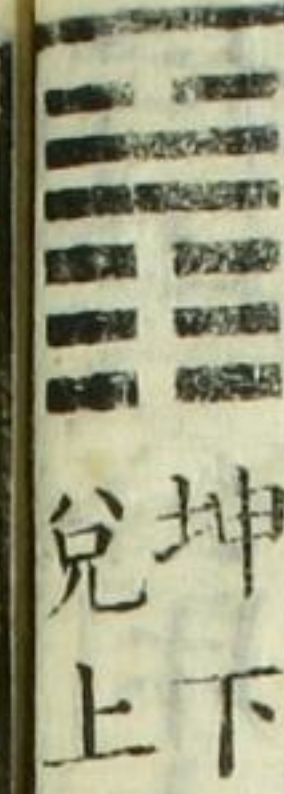 坤下
兌上